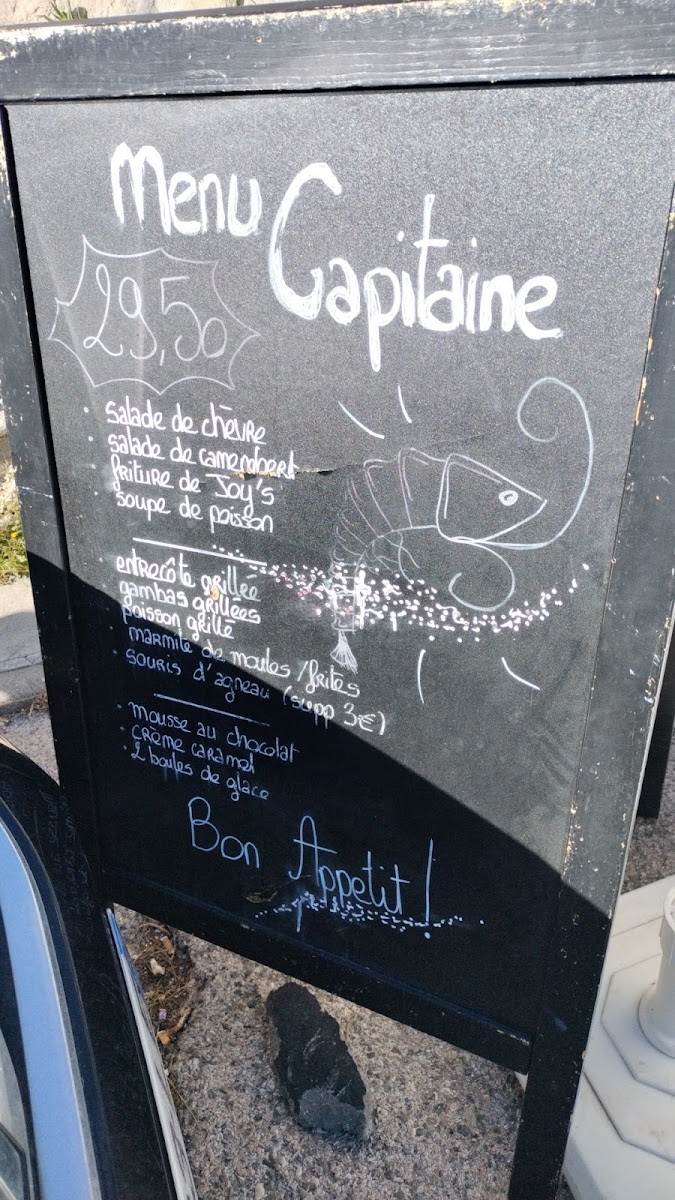 Menu
Capitaine
29,50
• salade de chèvre
• salade de camembert
friture de Joy's
• soupe de poisson
• entrecôte grillée
gambas grillées
poisson grillé
• marmite de moules / frites
• souris d'agneau (supp 3€)
• mousse au chocolat
• crème caramel
• 2 boules de glace
Bon Appetit !